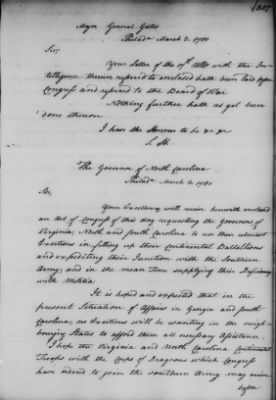 Major General Gates
Philada March 3. 1780
Sir,
Your Letter of the 17th Ulto with the In-
telligence therein referred to enclosed hath been laid before
Congress and referred to the Board of War
Nothing further hath as yet been
done thereon
I have the Honour to be &c &c
S. H.
The Governor of North Carolina
Philada March 3. 1780
Sir,
Your Excellency will receive herewith enclosed
an Act of Congress of this day requesting the Governors of
Virginia, North and South Carolina to use their utmost
Exertions in filling up their Continental Battallions
and expediting their Junction with the Southern
Army; and in the mean Time supplying their Deficiency
with Militia
It is hoped and expected that in the
present Situation of Affairs in Georgia and South
Carolina, no Exertions will be wanting in the neigh-
bouring States to afford them all necessary Assistance.
I hope the Virginia and North Carolina Continental
Troops with the Corps of Dragoons which Congress
have ordered to join the Southern Army may arrive
before